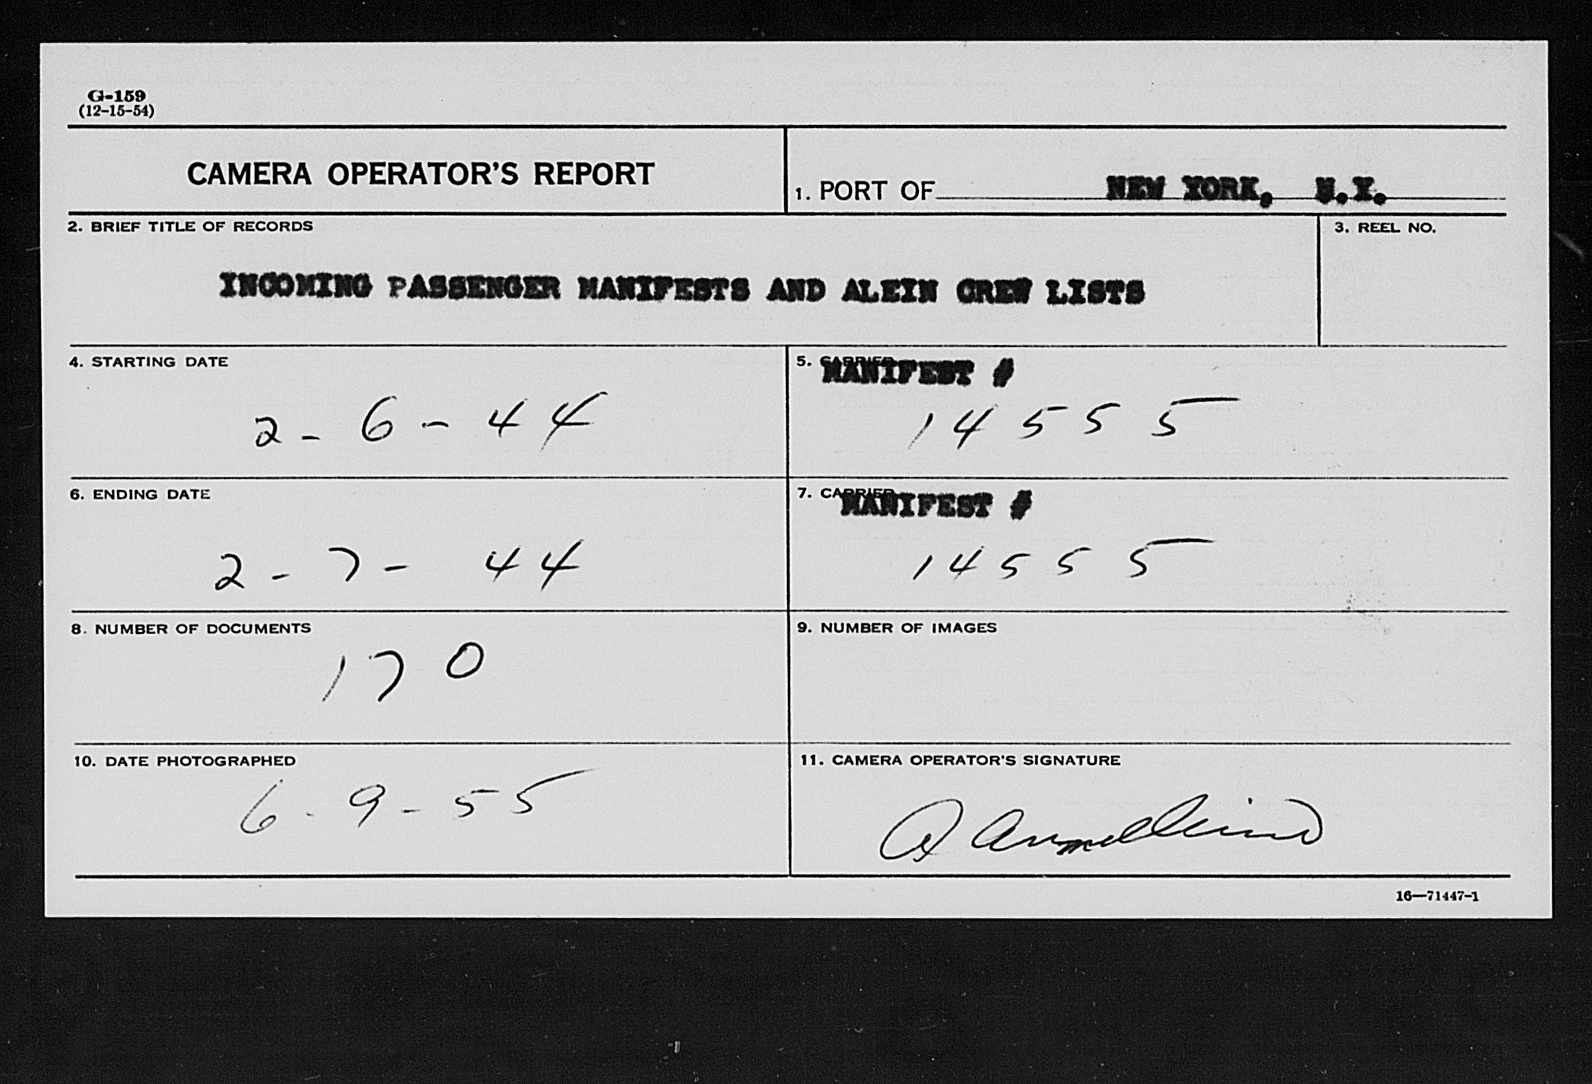 G-159
(12-15-54)
CAMERA OPERATOR'S REPORT
1. PORT OF NEW YORK, N.Y.
2. BRIEF TITLE OF RECORDS
3. REEL NO.
INCOMING PASSENGER MANIFESTS AND ALEIN CREW LISTS
4. STARTING DATE
5. CARRIER
MANIFEST #
2-6-44
14555
6. ENDING DATE
7. CARRIER
MANIFEST #
2-7-44
14555
8. NUMBER OF DOCUMENTS
9. NUMBER OF IMAGES
170
10. DATE PHOTOGRAPHED
11. CAMERA OPERATOR'S SIGNATURE
6-9-55
16—71447-1